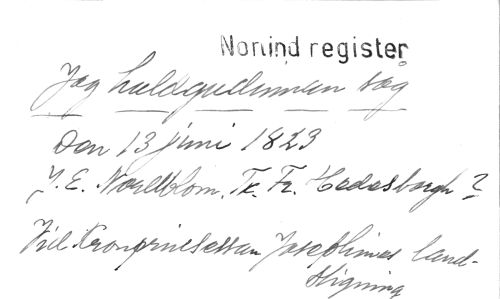 Nomind register
Jag huldgudinnan såg
den 13 juni 1823
J. E. Nordblom, Tk. Fr. Hedesborgh ?
Vid Kronprinsessan Josephines land-
stigning